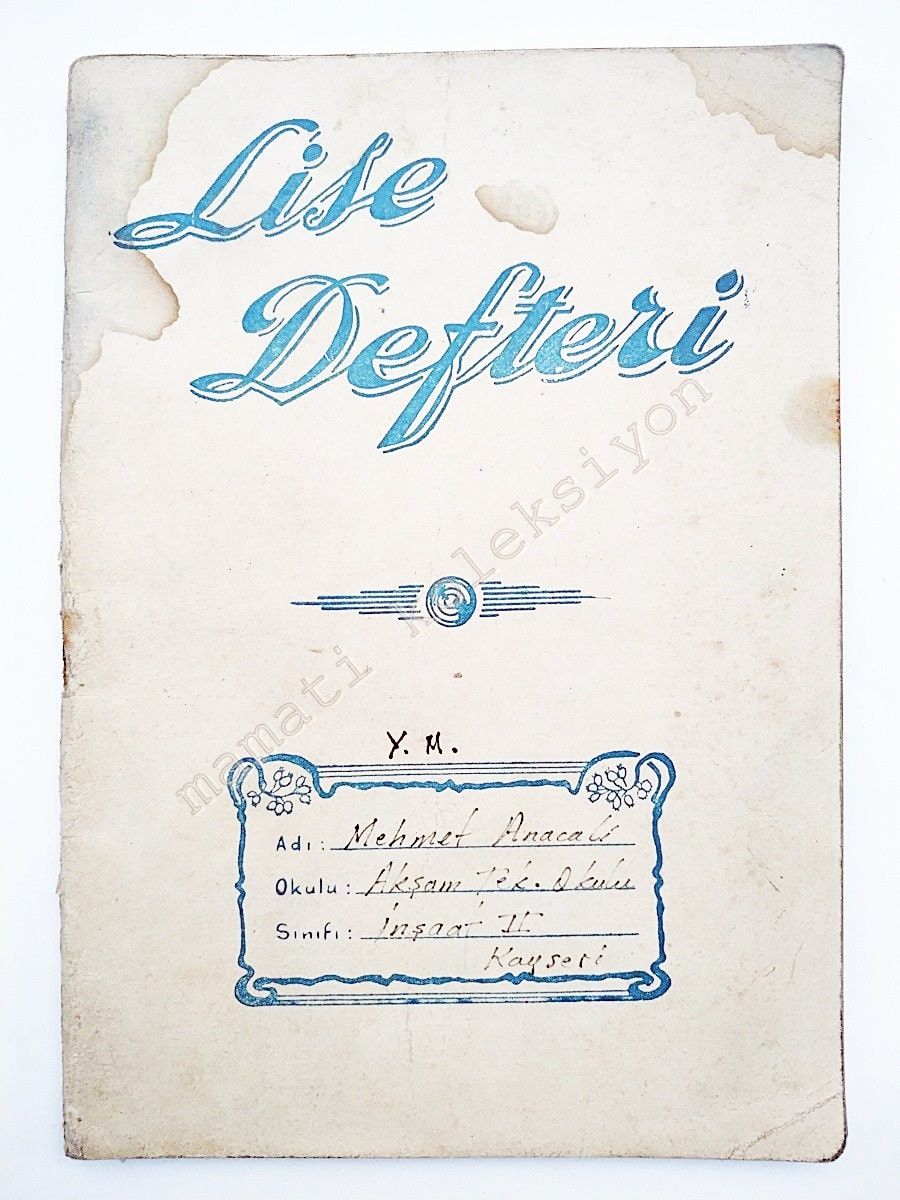 Lise
Defteri
mamati koleksiyon
Y. M.
Adı: Mehmet Anacali
Okulu: Akşam Tek. Okulu
Sınıfı: İnşaat II
Kayseri